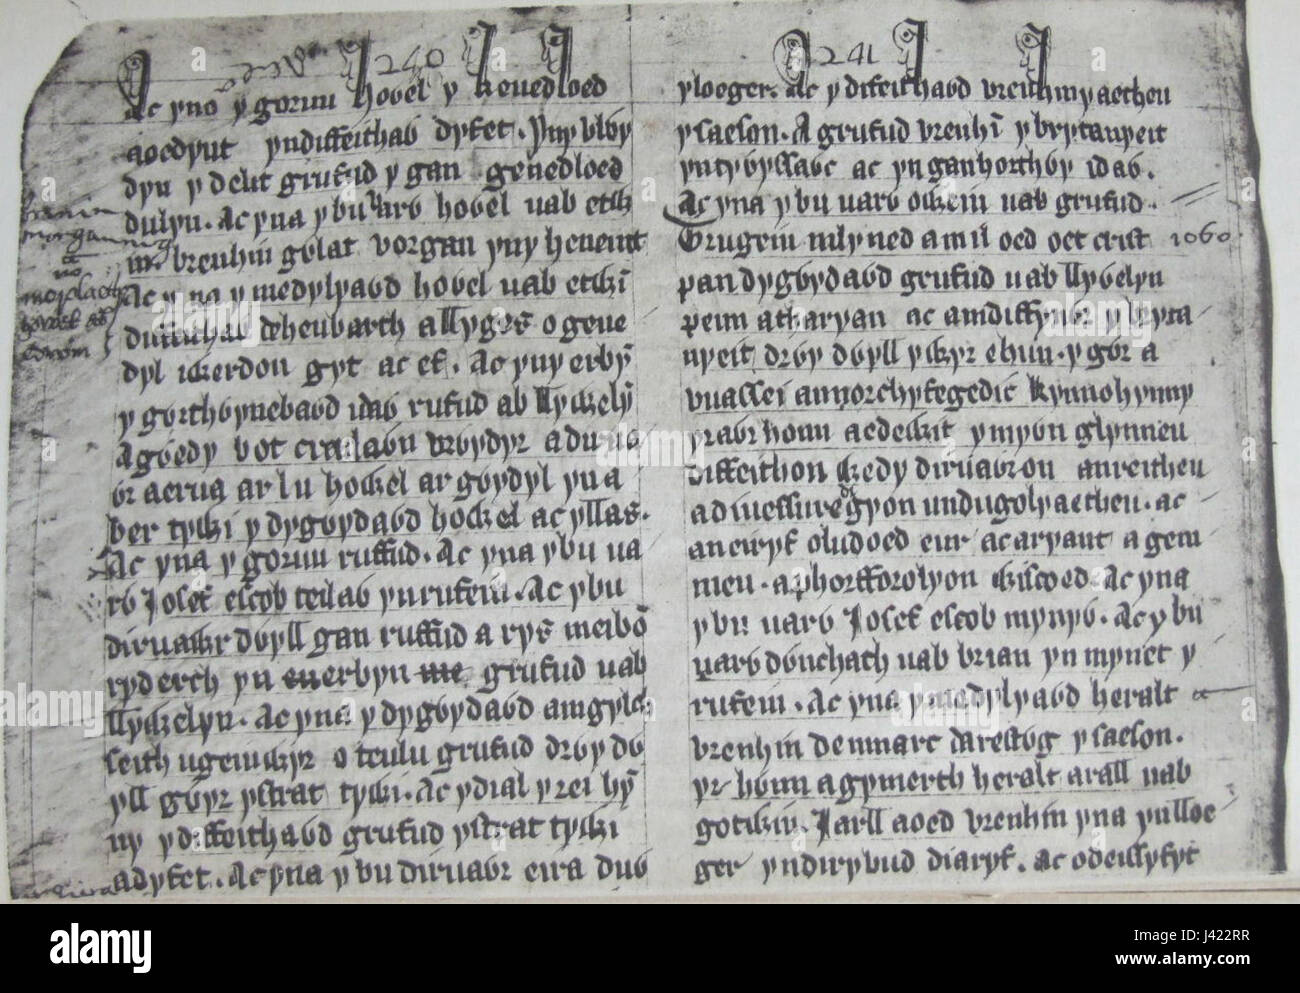 240
Ac yno y goruu howel y kenedloed
aoedynt yndiffeithaw dyfet. Yny vlwy
dyn y delit grufud y gan genedloed
dulyn. Ac yna y bu varw howel uab etwin
brenhin gwlat vorgan yny heneint
Ac y na y medylyawd howel uab etwin
diffeithaw deheubarth a llyges o gene
dyl iwerdon gyt ac ef. Ac yny erbyn
y gwrthwynebawd idaw rufud ab llywelyn
Agwedy bot creulawn vrwydyr a dirua
wr aerua ar lu howel ar gwydyl yn a
ber tywi y dygwydawd howel ac y llas.
Ac yna y goruu ruffud. Ac yna y bu ua
rw Josef escob teilaw yn rufein. Ac y bu
diruawr dwyll gan ruffud a rys meibon
ryderch yn erbyn grufud uab
llywelyn. Ac yna y dygwydawd amgylch
seith ugeinwyr o teulu grufud drwy dw
yll gwyr ystrat tywi. Ac y dial y rei hyn
ny y diffeithawd grufud ystrat tywi
a dyfet. Ac yna y bu diruawr eira duw
241
ylloeger. Ac y diffeithawd vrenhinyaetheu
y saeson. A grufud vrenhin y brytanyeit
yn tywyssawc ac yn ganhorthwy idaw.
Ac yna y bu uarw owein uab grufud.
Trugein mlyned a mil oed oet crist 1060
pan dygwydawd grufud uab llywelyn
penn a tharyan ac amdiffynwr y bryta
nyeit drwy dwyll y wyr ehun. y gwr a
vuassei annorchyfegedic kynno hynny
yr awr honn a edewit y mywn glynneu
diffeithon wedy diruawron anreitheu
a diuessuredigyon uudugolyaetheu. ac
aneiryf oludoed eur ac aryant a gem
meu. a phorfforolyon wiscoed. Ac yna
y bu uarw Josef escob mynyw. Ac y bu
uarw dwnchath uab brian yn mynet y
rufein. Ac yna y medylyawd heralt
brenhin denmarc darestwg y saeson.
yr hwnn a gymerth heralt arall uab
gotwin. Jarll a oed vrenhin yna yn lloe
ger yn dirybud diaryf. ac o deissyfyt
alamy
Image ID: J422RR
www.alamy.com